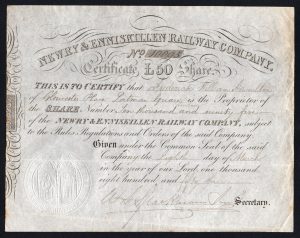 NEWRY & ENNISKILLEN RAILWAY COMPANY.
No
Certificate, £50 Share.
THIS IS TO CERTIFY that
of Place Portman Square is the Proprietor of
the SHARE, Number Ten thousand and ninety
of the NEWRY & ENNISKILLEN RAILWAY COMPANY, subject
to the Rules, Regulations and Orders of the said Company.
Given under the Common Seal of the said
Company, the Eighth day of March
in the year of our Lord, one thousand
eight hundred, and
Secretary.